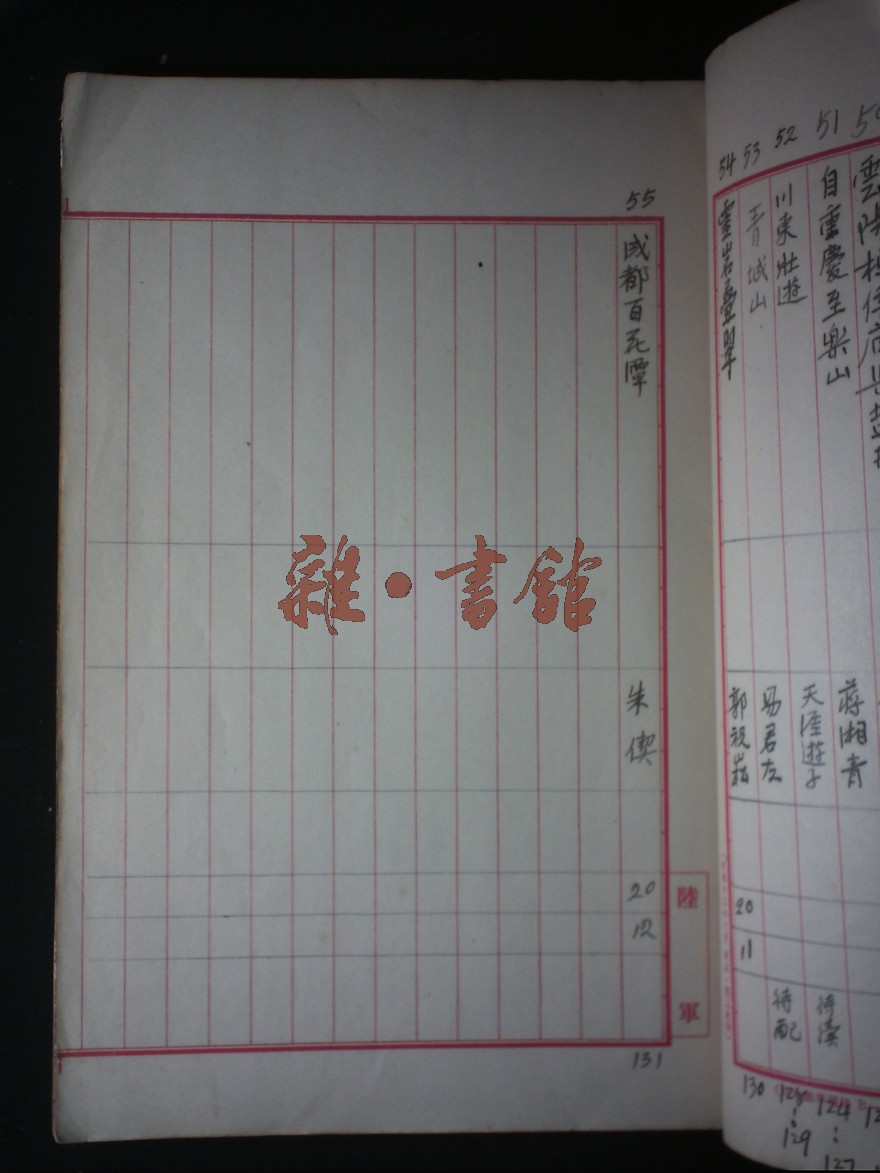 55
成都百花潭
朱偰
20
12
131
陸軍
雜·書館
51
自重慶至樂山
蔣湘青
52
川東壯遊
天涯遊子
待續
124
127
53
青城山
易君左
待配
128
129
54
靈岩疊翠
郭祝崧
20
11
130